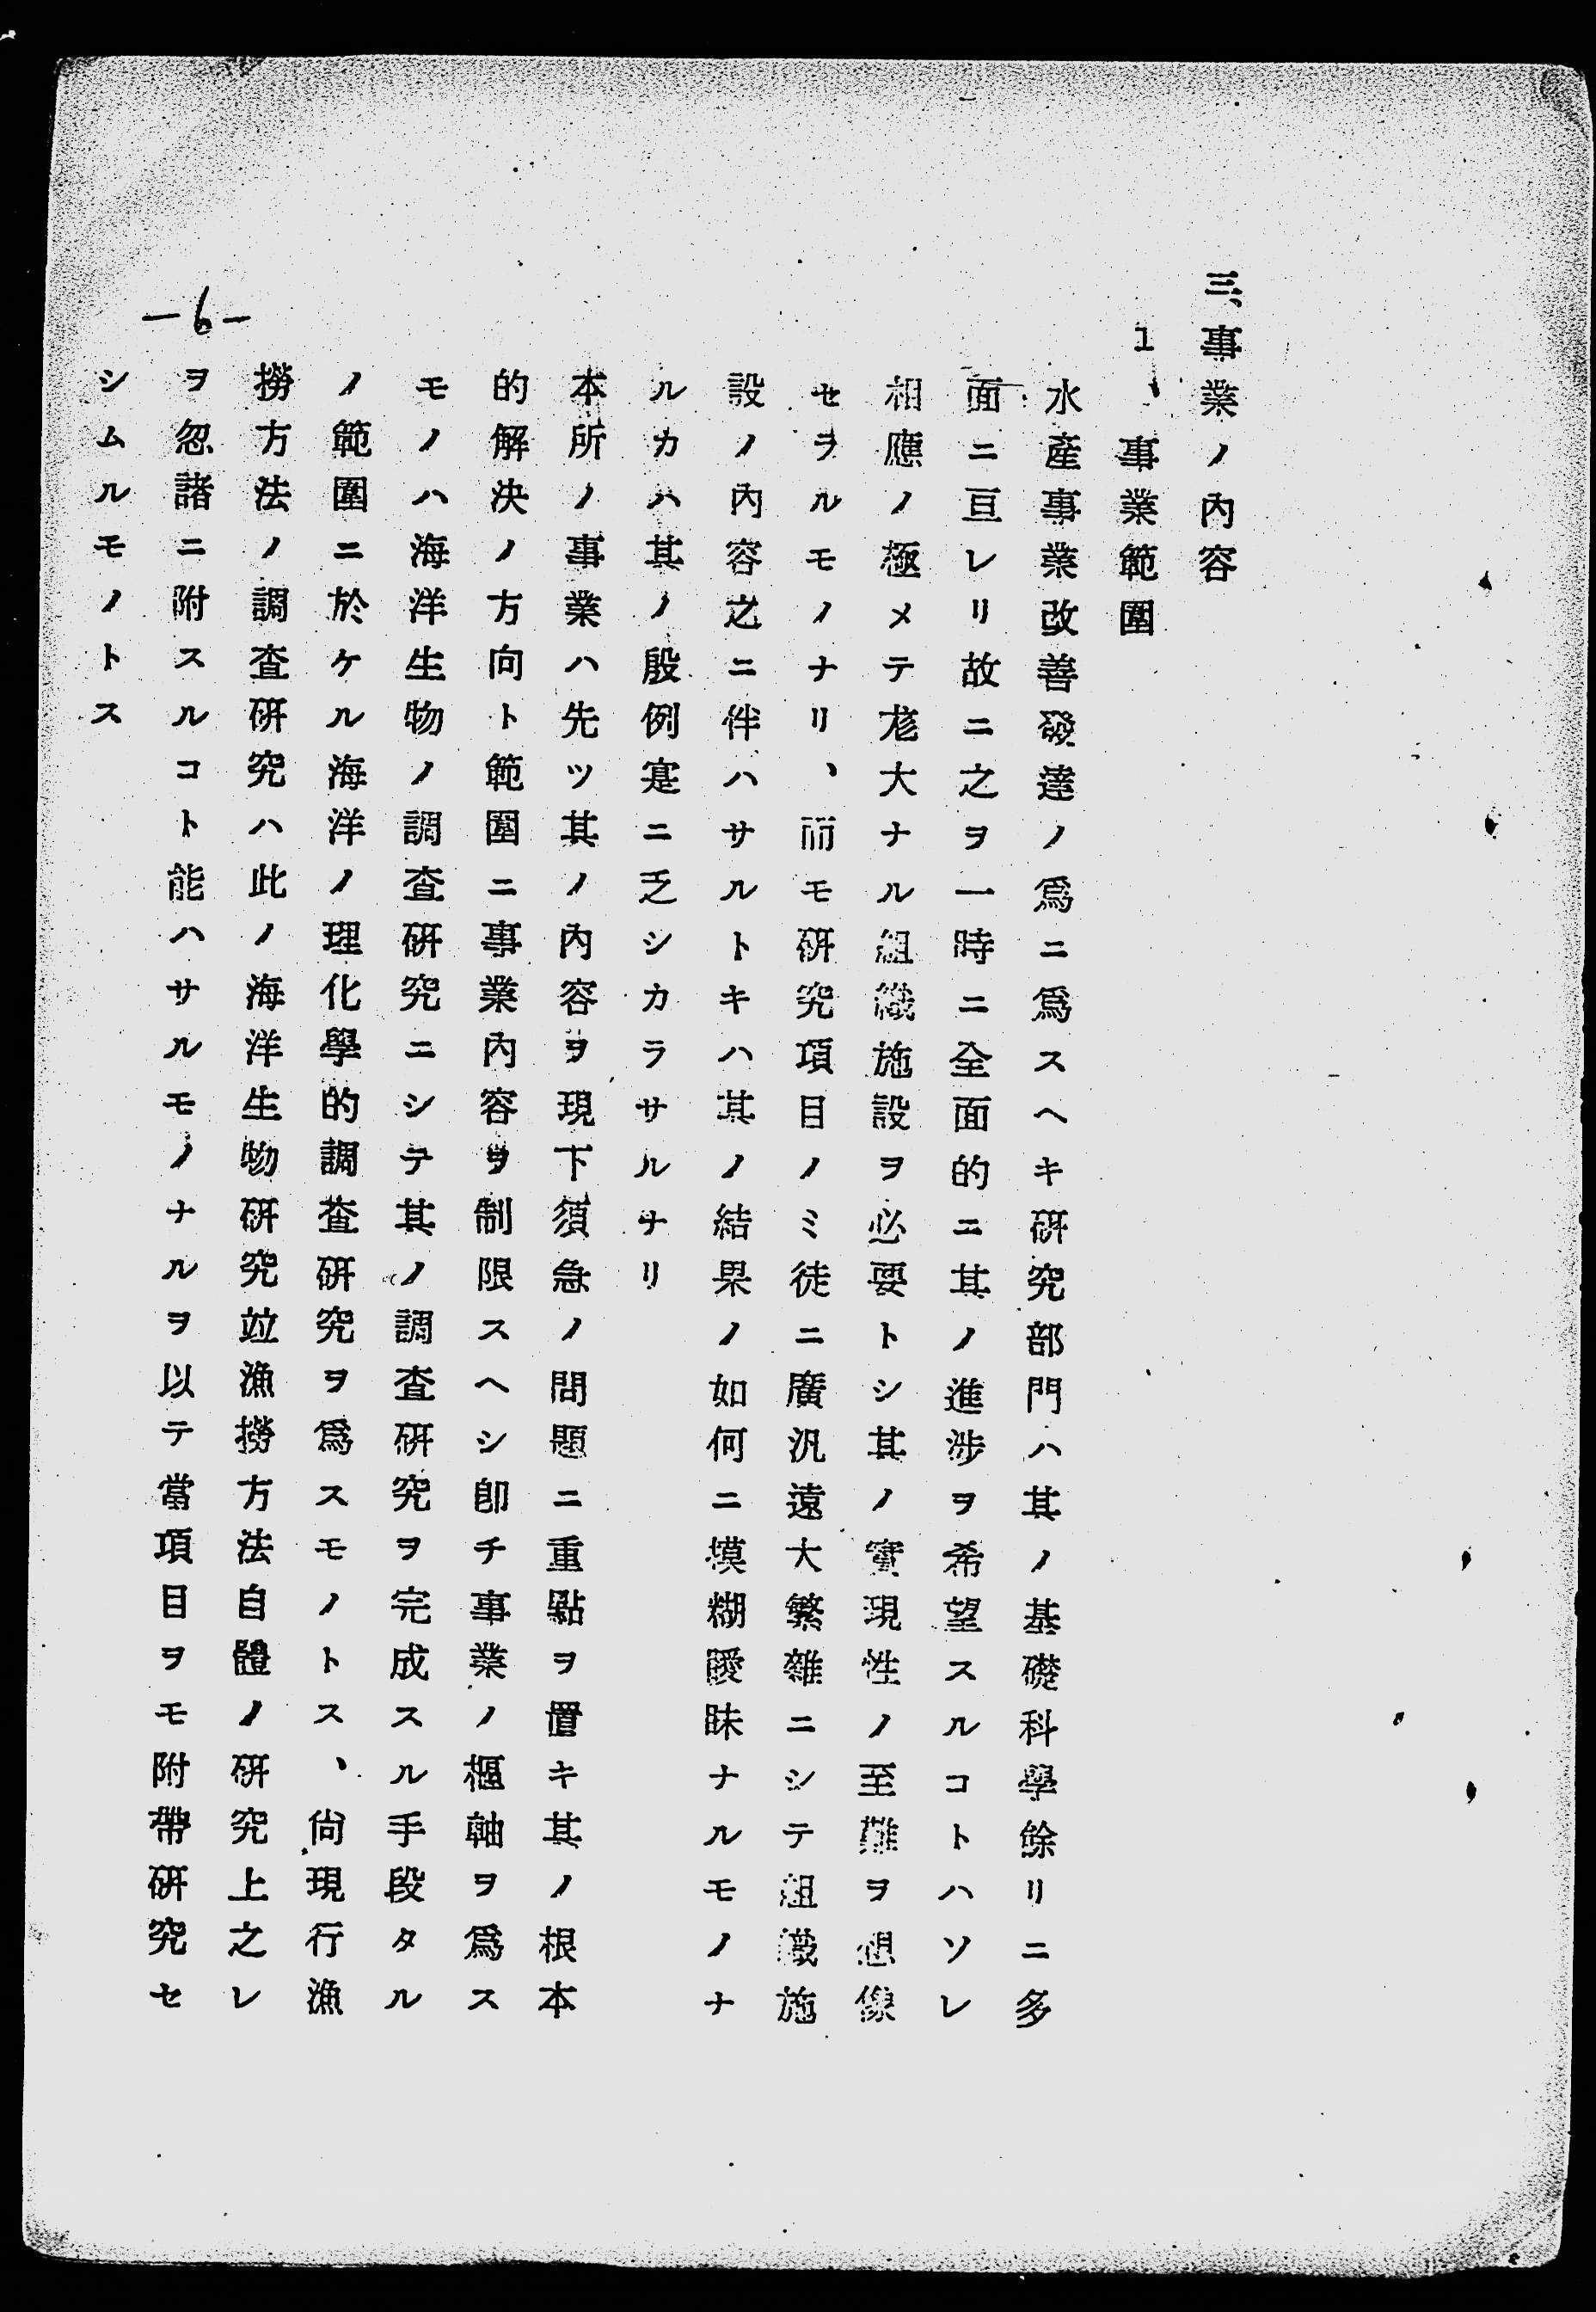 三、事業ノ內容
1、事業範圍
水產事業改善發達ノ爲ニ爲スヘキ硏究部門ハ其ノ基礎科學餘リニ多
面ニ亘レリ故ニ之ヲ一時ニ全面的ニ其ノ進涉ヲ希望スルコトハソレ
相應ノ極メテ尨大ナル組織施設ヲ必要トシ其ノ實現性ノ至難ヲ想像
セラルモノナリ、而モ硏究項目ノミ徒ニ廣汎遠大繁雜ニシテ組織施
設ノ內容之ニ伴ハサルトキハ其ノ結果ノ如何ニ模糊曖昧ナルモノナ
ルカハ其ノ殷例寔ニ乏シカラサルナリ
本所ノ事業ハ先ツ其ノ內容ヲ現下須急ノ問題ニ重點ヲ置キ其ノ根本
的解決ノ方向ト範圍ニ事業內容ヲ制限スヘシ卽チ事業ノ樞軸ヲ爲ス
モノハ海洋生物ノ調査硏究ニシテ其ノ調査硏究ヲ完成スル手段タル
ノ範圍ニ於ケル海洋ノ理化學的調査硏究ヲ爲スモノトス、尙現行漁
撈方法ノ調査硏究ハ此ノ海洋生物硏究竝漁撈方法自體ノ硏究上之レ
ヲ忽諸ニ附スルコト能ハサルモノナルヲ以テ當項目ヲモ附帶硏究セ
シムルモノトス
-6-